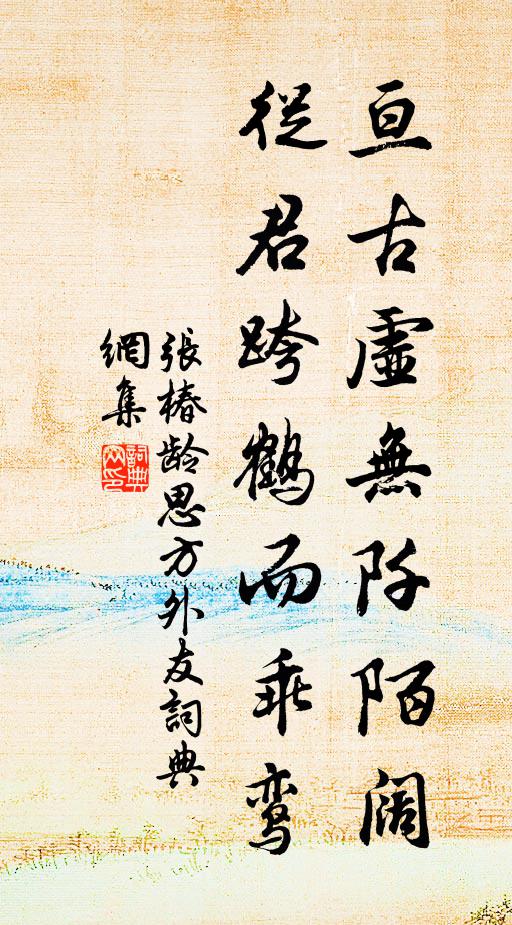 亘古虛無阡陌阔
從君跨鶴而乘鸾
張椿龄思方外友詞典
網集
詞典
网印